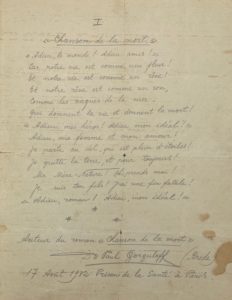 I
« Chanson de la mort. »
« Adieu, le monde! Adieu amer!
Car notre vie est comme une fleur!
Et notre vie est comme un rêve!
Et notre rêve est comme un son,
Comme des vagues de la mer
Qui donnent la vie et donnent la mort!
« Adieu mes héros! Adieu mon idéal!
Adieu, ma femme et mon amour!
Je pars au ciel, qui est plein d'étoiles!
Je quitte la terre, et pour toujours!
Ma Mère-Nature! prends-moi!
Je suis ton fils! J'ai une fin fatale!
« Adieu, romans! Adieu, mon idéal! »
Auteur du roman « Chanson de la mort »
Dr Paul Gorguloff
17 Août 1932 Prison de la Santé à Paris